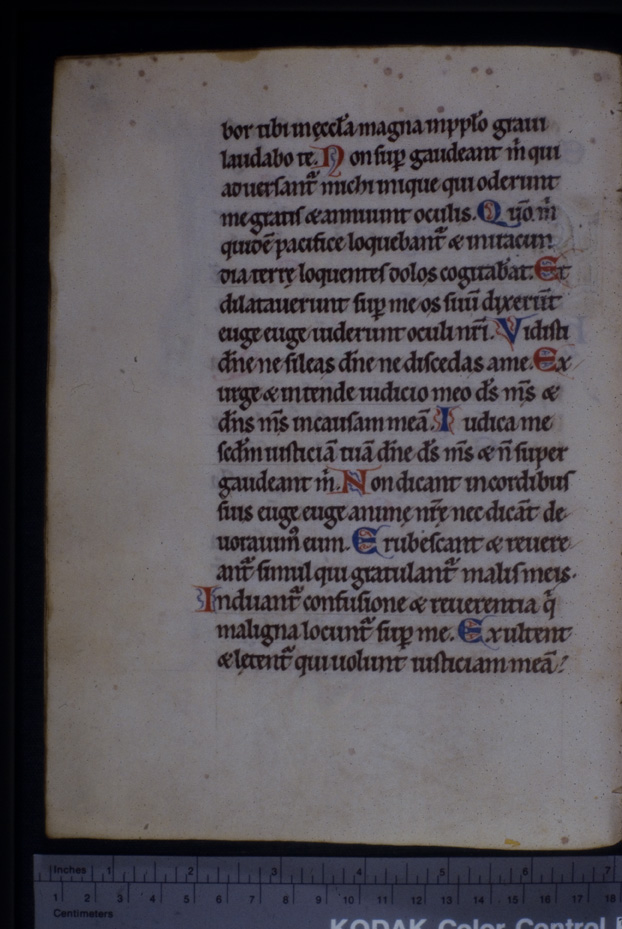 bor tibi in ęccl̄a magna in pp̄lo graui
laudabo te. Non sup̱ gaudeant m̄ qui
aduersant̄ michi inique qui oderunt
me gratis & annuunt oculis. Qūo. m̄
quidē pacifice loquebant̄ & in iracun
dia terrę loquentes dolos cogitabāt. Et
dilatauerunt sup̱ me os suū dixerūt
euge euge uiderunt oculi nr̄i. Vidisti
dn̄e ne sileas dn̄e ne discedas a me. Ex
urge & intende iudicio meo ds̄ ms̄ &
dn̄s ms̄ in causam meā. Iudica me
sedm̄ iusticiā tuā dn̄e ds̄ ms̄ & n̄ super
gaudeant m̄. Non dicant in cordibus
suis euge euge animę nr̄ę nec dicāt de
uorauim̄ eum. Erubescant & reuere
ant̄ simul qui gratulant̄ malis meis.
Induant̄ confusione & reuerentia q̄
maligna locunt̄ sup̱ me. Exultent
& lętent̄ qui uolunt iusticiam meā!
Inches 1 2 3 4 5 6 7
1 2 3 4 5 6 7 8 9 10 11 12 13 14 15 16 17 18
Centimeters
KODAK Color Control